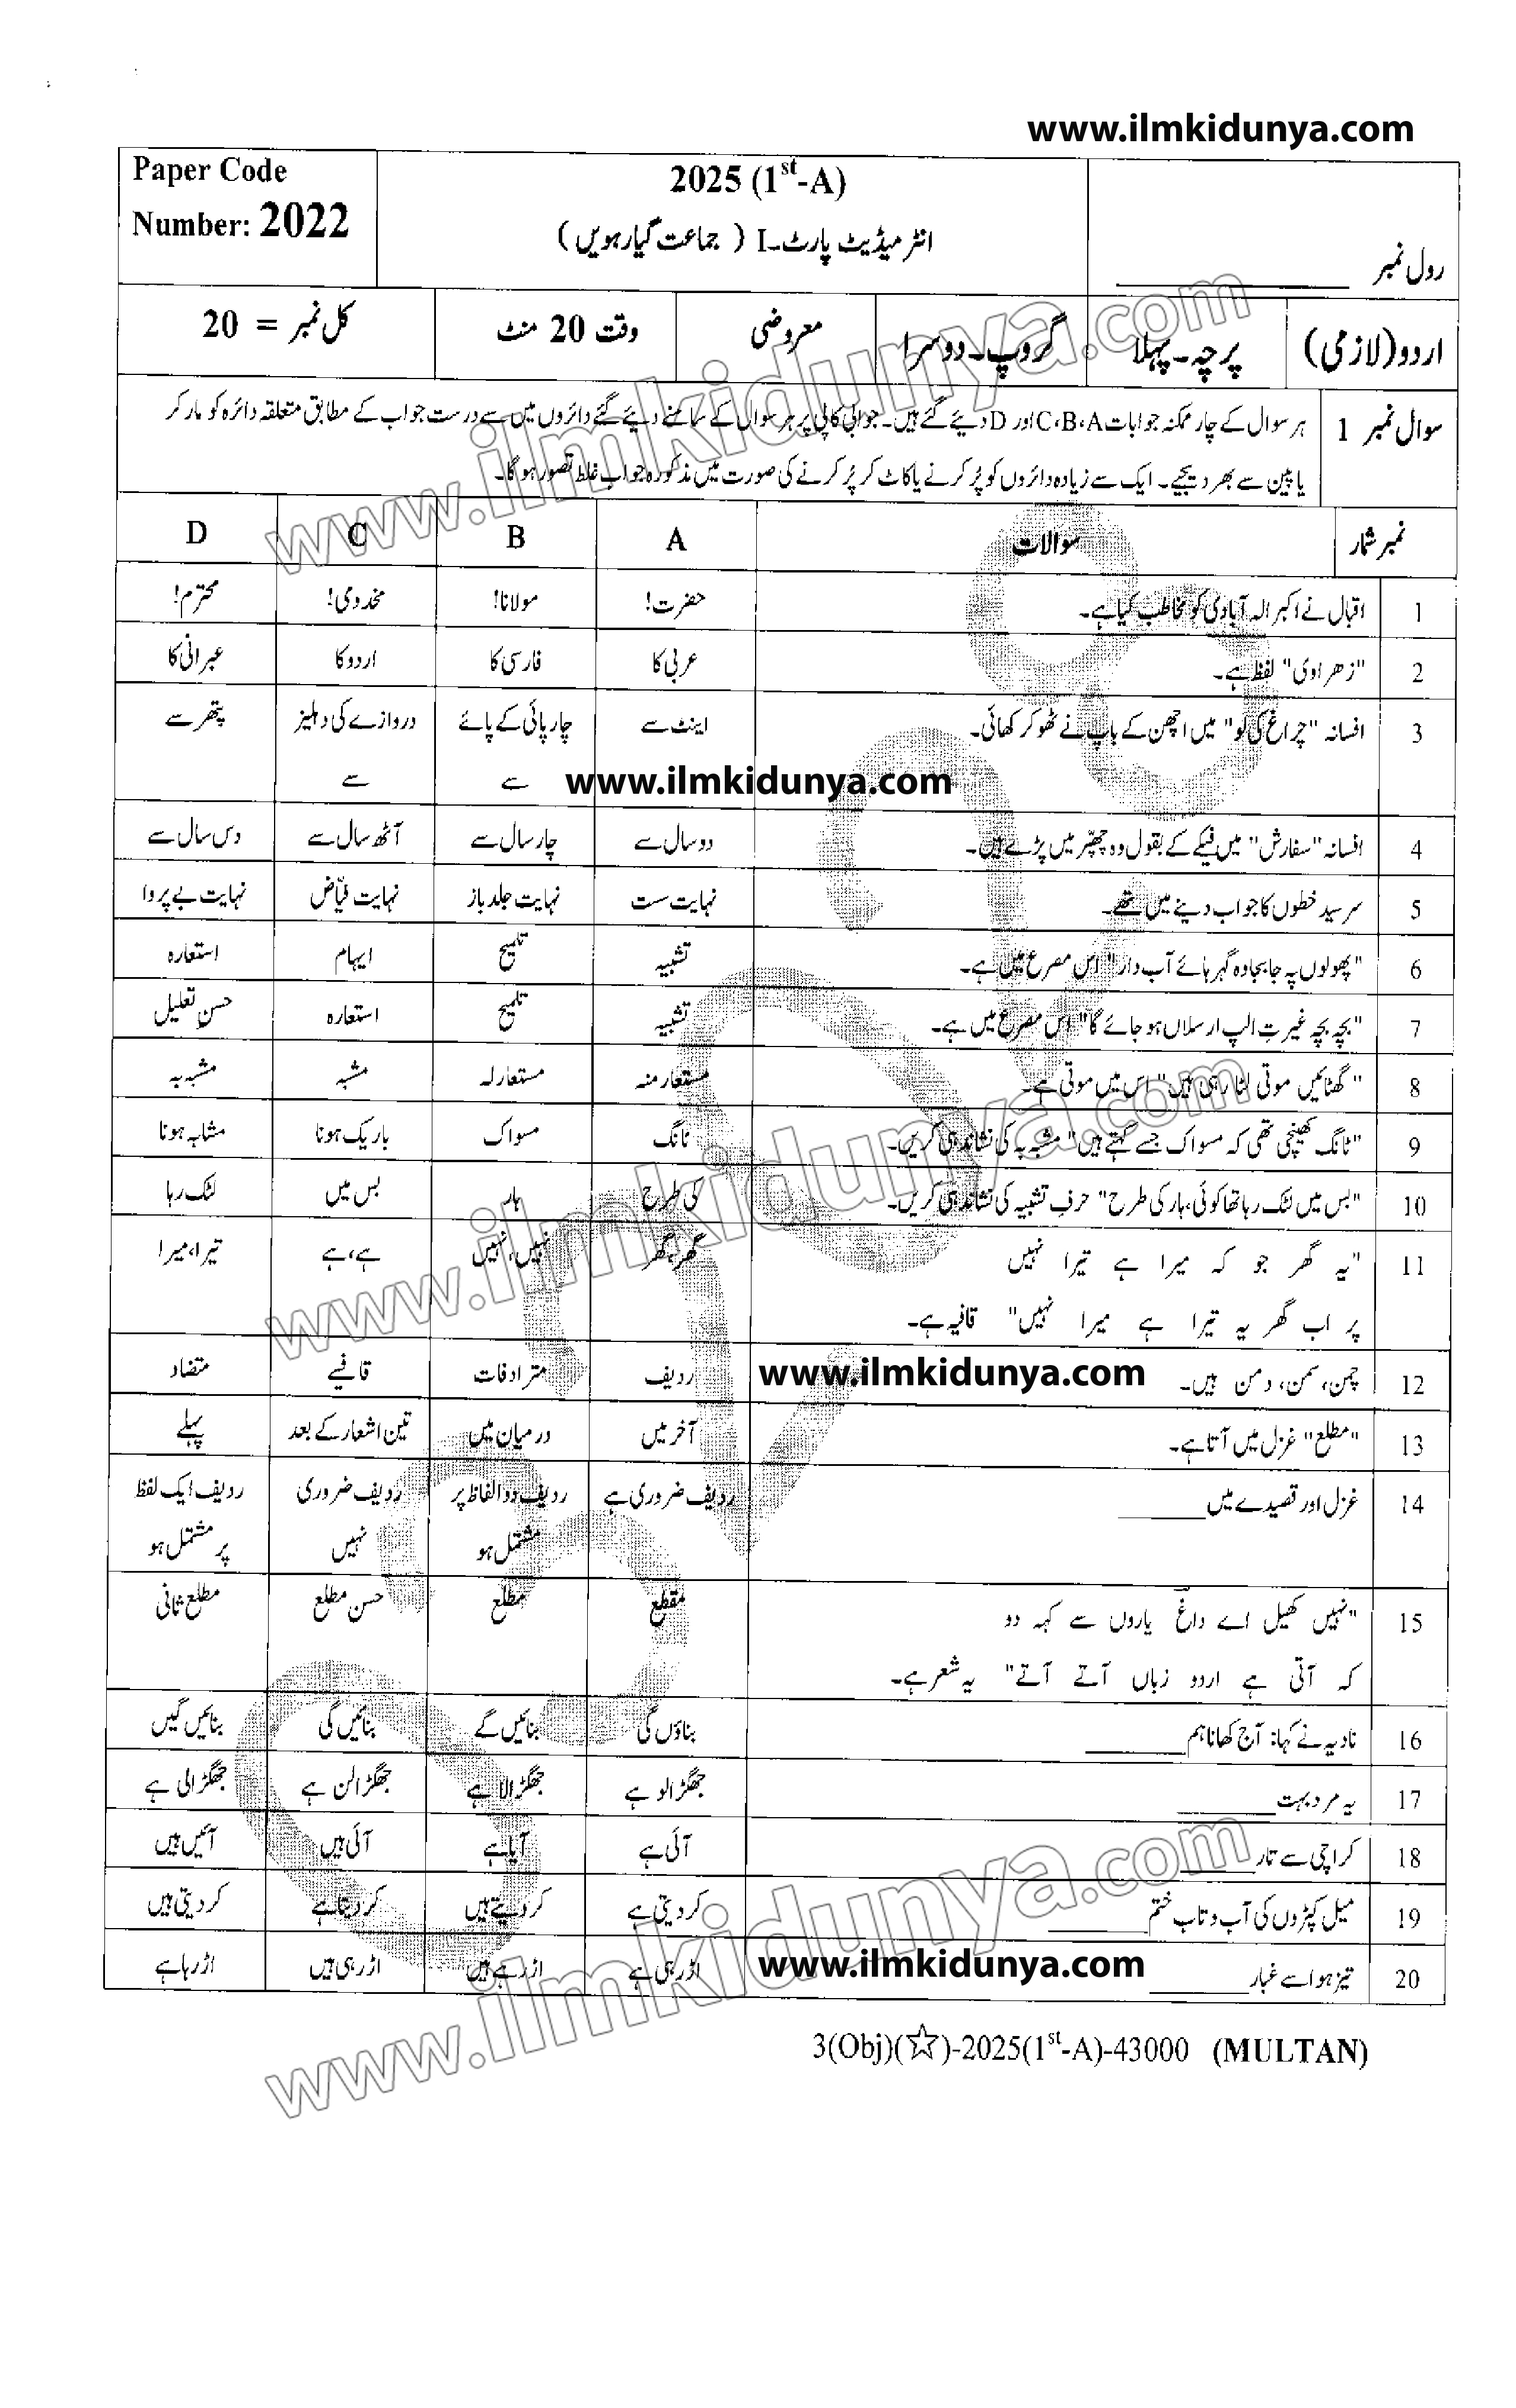 www.ilmkidunya.com
Paper Code
Number: 2022
2025 (1st-A)
انٹرمیڈیٹ پارٹ-I (جماعت گیارہویں)
رول نمبر ____________
اردو(لازمی) پرچہ۔پہلا گروپ۔دوسرا معروضی وقت 20 منٹ کل نمبر = 20
سوال نمبر 1 ہر سوال کے چار ممکنہ جوابات A،B،C اور D دیئے گئے ہیں۔ جوابی کاپی پر ہر سوال کے سامنے دیئے گئے دائروں میں سے درست جواب کے مطابق متعلقہ دائرہ کو مارکر
یا پین سے بھر دیجیے۔ ایک سے زیادہ دائروں کو پُر کرنے یا کاٹ کر پُر کرنے کی صورت میں مذکورہ جواب غلط تصور ہوگا۔
نمبر شمار سوالات A B C D
1 اقبال نے اکبر الہ آبادی کو مخاطب کیا ہے۔ حضرت! مولانا! مخدومی! محترم!
2 "زھراوی" لفظ ہے۔ عربی کا فارسی کا اردو کا عبرانی کا
3 افسانہ "چراغ کی لو" میں اچھن کے باپ نے ٹھوکر کھائی۔ اینٹ سے چارپائی کے پائے دروازے کی دہلیز پتھر سے
سے سے
www.ilmkidunya.com
4 افسانہ "سفارش" میں فیکے کے بقول وہ چھپّر میں پڑے ہیں۔ دو سال سے چار سال سے آٹھ سال سے دس سال سے
5 سرسید خطوں کا جواب دینے میں تھے۔ نہایت ست نہایت جلد باز نہایت فیّاض نہایت بے پروا
6 "پھولوں پہ جا بجا وہ گہر ہائے آب دار" اس مصرع میں ہے۔ تشبیہ تلمیح ایہام استعارہ
7 "بچہ بچہ غیرتِ الپ ارسلاں ہو جائے گا" اس مصرع میں ہے۔ تشبیہ تلمیح استعارہ حسن تعلیل
8 "گھٹائیں موتی لٹا رہی ہیں" اس میں موتی ہے۔ مستعار منہ مستعار لہ مشبہ مشبہ بہ
9 "ٹانگ کھینچی تھی کہ مسواک جسے کہتے ہیں" مشبہ بہ کی نشاندہی کریں۔ ٹانگ مسواک باریک ہونا مشابہ ہونا
10 "بس میں لٹک رہا تھا کوئی ہار کی طرح" حرف تشبیہ کی نشاندہی کریں۔ کی طرح ہار بس میں لٹک رہا
11 "یہ گھر جو کہ میرا ہے تیرا نہیں گھر، گھر نہیں، نہیں ہے، ہے تیرا، میرا
پر اب گھر یہ تیرا ہے میرا نہیں" قافیہ ہے۔
12 چمن، سمن، دمن ہیں۔ www.ilmkidunya.com ردیف مترادفات قافیے متضاد
13 "مطلع" غزل میں آتا ہے۔ آخر میں درمیان میں تین اشعار کے بعد پہلے
14 غزل اور قصیدے میں ______ ردیف ضروری ہے ردیف دو الفاظ پر ردیف ضروری ردیف ایک لفظ
مشتمل ہو نہیں پر مشتمل ہو
15 "نہیں کھیل اے داغؔ یاروں سے کہہ دو مقطع مطلع حسن مطلع مطلع ثانی
کہ آتی ہے اردو زباں آتے آتے" یہ شعر ہے۔
16 نادیہ نے کہا: آج کھانا ہم ______ بناؤں گی بنائیں گے بنائیں گی بنائیں گیں
17 یہ مرد بہت ______ جھگڑالو ہے جھگڑالا ہے جھگڑالن ہے جھگڑالی ہے
18 کراچی سے تار ______ آئی ہے آیا ہے آئی ہیں آئیں ہیں
19 میل کپڑوں کی آب و تاب ختم ______ کر دیتی ہے کر دیتے ہیں کر دیتا ہے کر دیتی ہیں
20 تیز ہوا سے غبار ______ www.ilmkidunya.com اڑ رہی ہے اڑ رہے ہیں اڑ رہی ہیں اڑ رہا ہے
3(Obj)(☆)-2025(1st-A)-43000 (MULTAN)
www.ilmkidunya.com
www.ilmkidunya.com
www.ilmkidunya.com